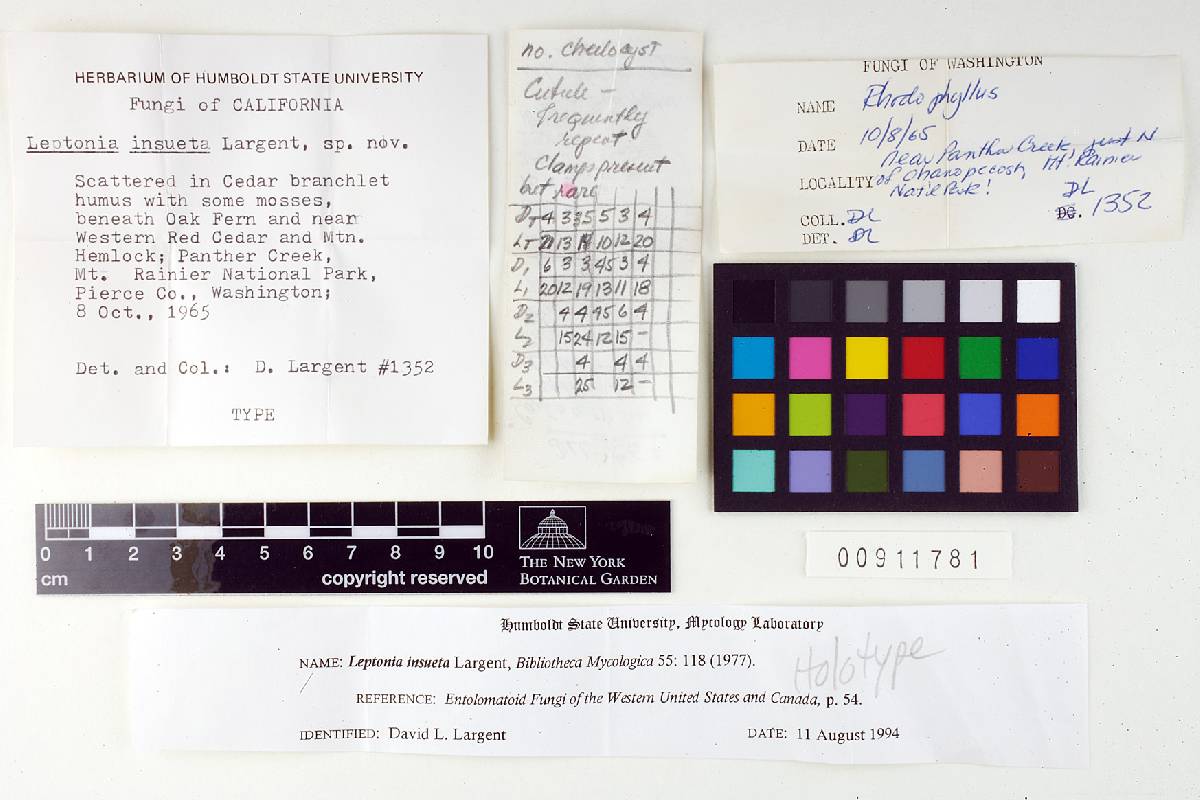 HERBARIUM OF HUMBOLDT STATE UNIVERSITY
Fungi of CALIFORNIA
Leptonia insueta Largent, sp. nov.
Scattered in Cedar branchlet
humus with some mosses,
beneath Oak Fern and near
Western Red Cedar and Mtn.
Hemlock; Panther Creek,
Mt. Rainier National Park,
Pierce Co., Washington;
8 Oct., 1965
Det. and Col.: D. Largent #1352
TYPE
no. cheilocyst
Cuticle -
frequently
repent
Clamps present
but rare
DT 4 3 3 5 5 3 4
LT 13 10 12 20
D1 6 3 3 45 3 4
L1 20 12 19 13 11 18
D2 4 4 45 6 4
L2 15 24 12 15 -
D3 4 4 4
L3 25 12 -
FUNGI OF WASHINGTON
NAME Rhodophyllus
DATE 10/8/65
LOCALITY near Panther Creek, just N
of Ohanapecosh, Mt Rainier
Nat'l Park!
COLL. DL
DET. DL
DL
1352
0 1 2 3 4 5 6 7 8 9 10
cm
copyright reserved
THE NEW YORK
BOTANICAL GARDEN
00911781
Humboldt State University, Mycology Laboratory
NAME: Leptonia insueta Largent, Bibliotheca Mycologica 55: 118 (1977).
Holotype
REFERENCE: Entolomatoid Fungi of the Western United States and Canada, p. 54.
IDENTIFIED: David L. Largent DATE: 11 August 1994